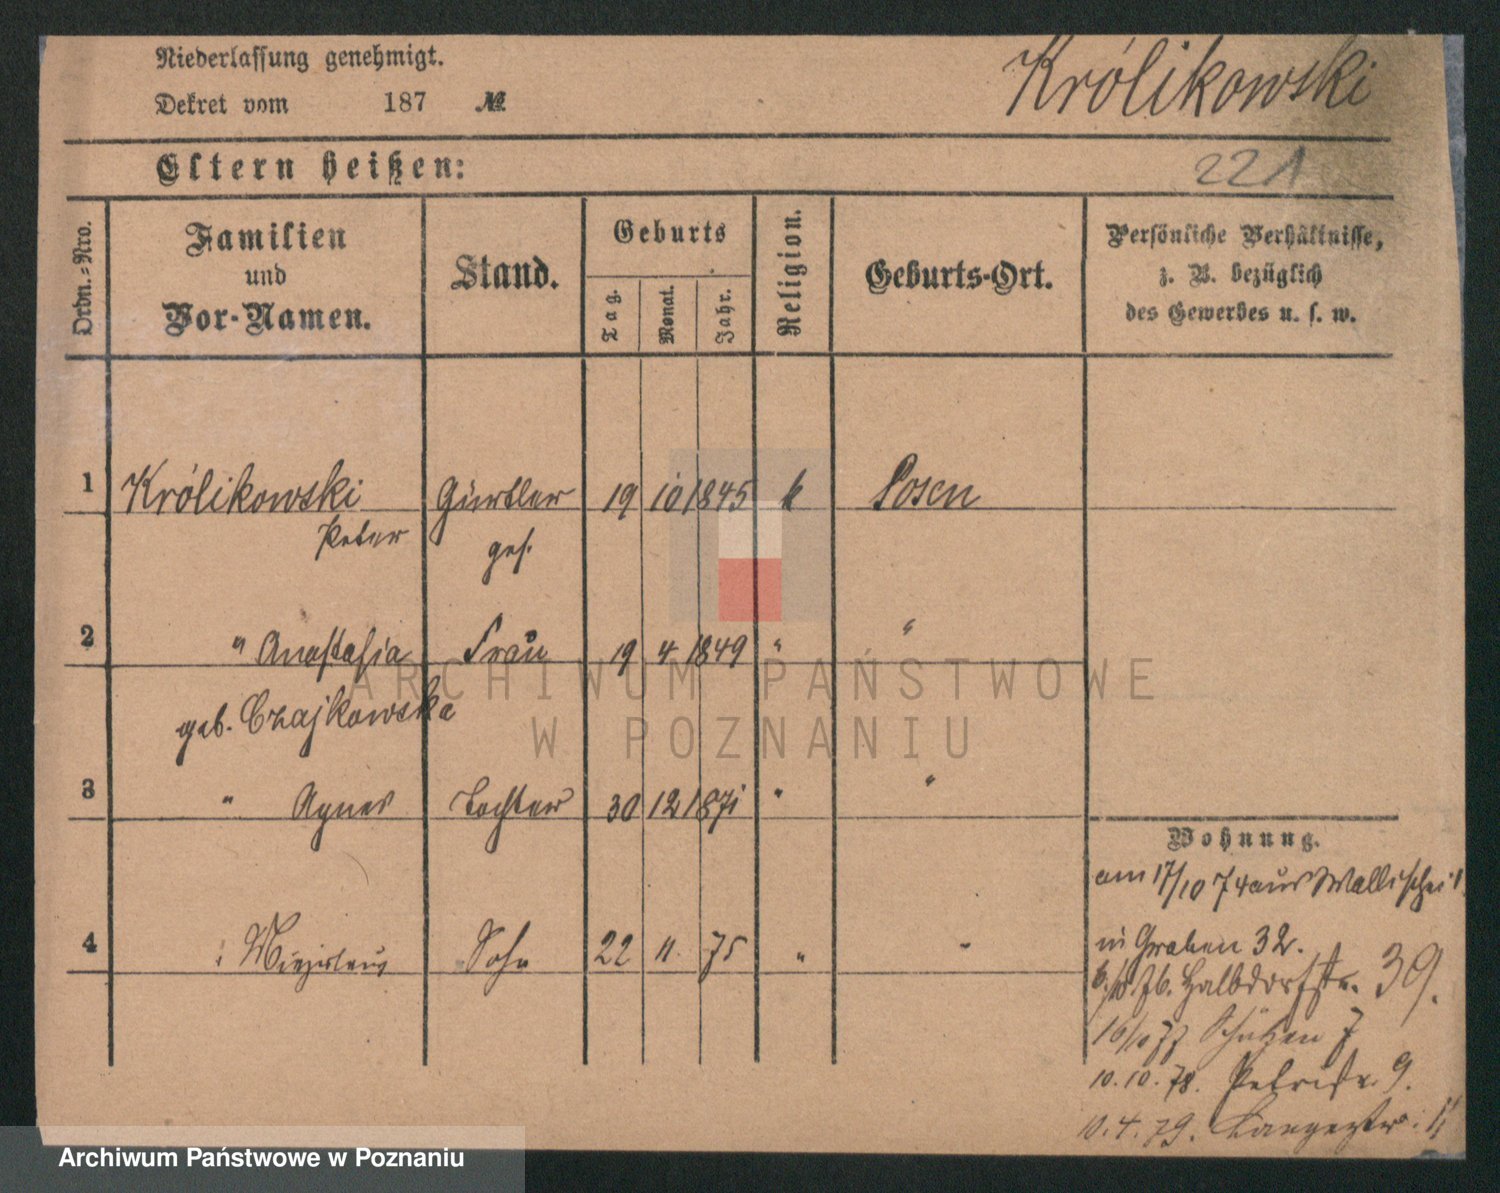 Niederlassung genehmigt.
Dekret vom 187 №
Królikowski
221
Eltern heißen:
Ordn.=Nro.
Familien
und
Vor-Namen.
Stand.
Geburts
Tag.
Monat.
Jahr.
Religion.
Geburts-Ort.
Persönliche Verhältnisse,
z. B. bezüglich
des Gewerbes u. s. w.
1 Królikowski Gürtler 19 10 1845 k Posen
Peter ges.
2 " Anastasia Frau 19 4 1849 " "
geb. Czajkowska
3 " Agnes Tochter 30 12 1871 " "
Wohnung.
am 17/10 74 aus Wallischei
4 Sohn 22 11. 75 " "
in Graben 32.
/10 76. Halbdorfstr. 39.
16/10 77 Schützen 7
10.10.78. Petristr. 9.
10.4.79. Langestr. 11
ARCHIWUM PAŃSTWOWE
W POZNANIU
Archiwum Państwowe w Poznaniu